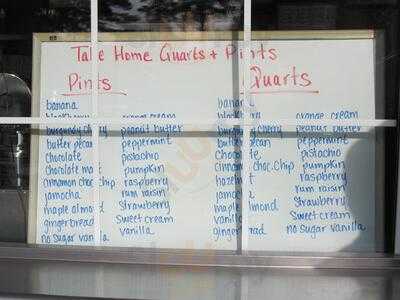 Take Home Quarts + Pints
Pints
banana
blackberry orange cream
burgundy cherry peanut butter
butter pecan peppermint
chocolate pistachio
chocolate pumpkin
cinnamon choc. chip raspberry
jamocha rum raisin
maple almond Strawberry
gingerbread Sweet cream
no sugar vanilla vanilla
Quarts
banana
blackberry orange cream
burgundy cherry peanut butter
butter pecan peppermint
Chocolate pistachio
Cinnam. choc. Chip pumpkin
hazelnut raspberry
jamoca rum raisin
maple almond Strawberry
vanilla Sweet cream
ginger no sugar vanilla